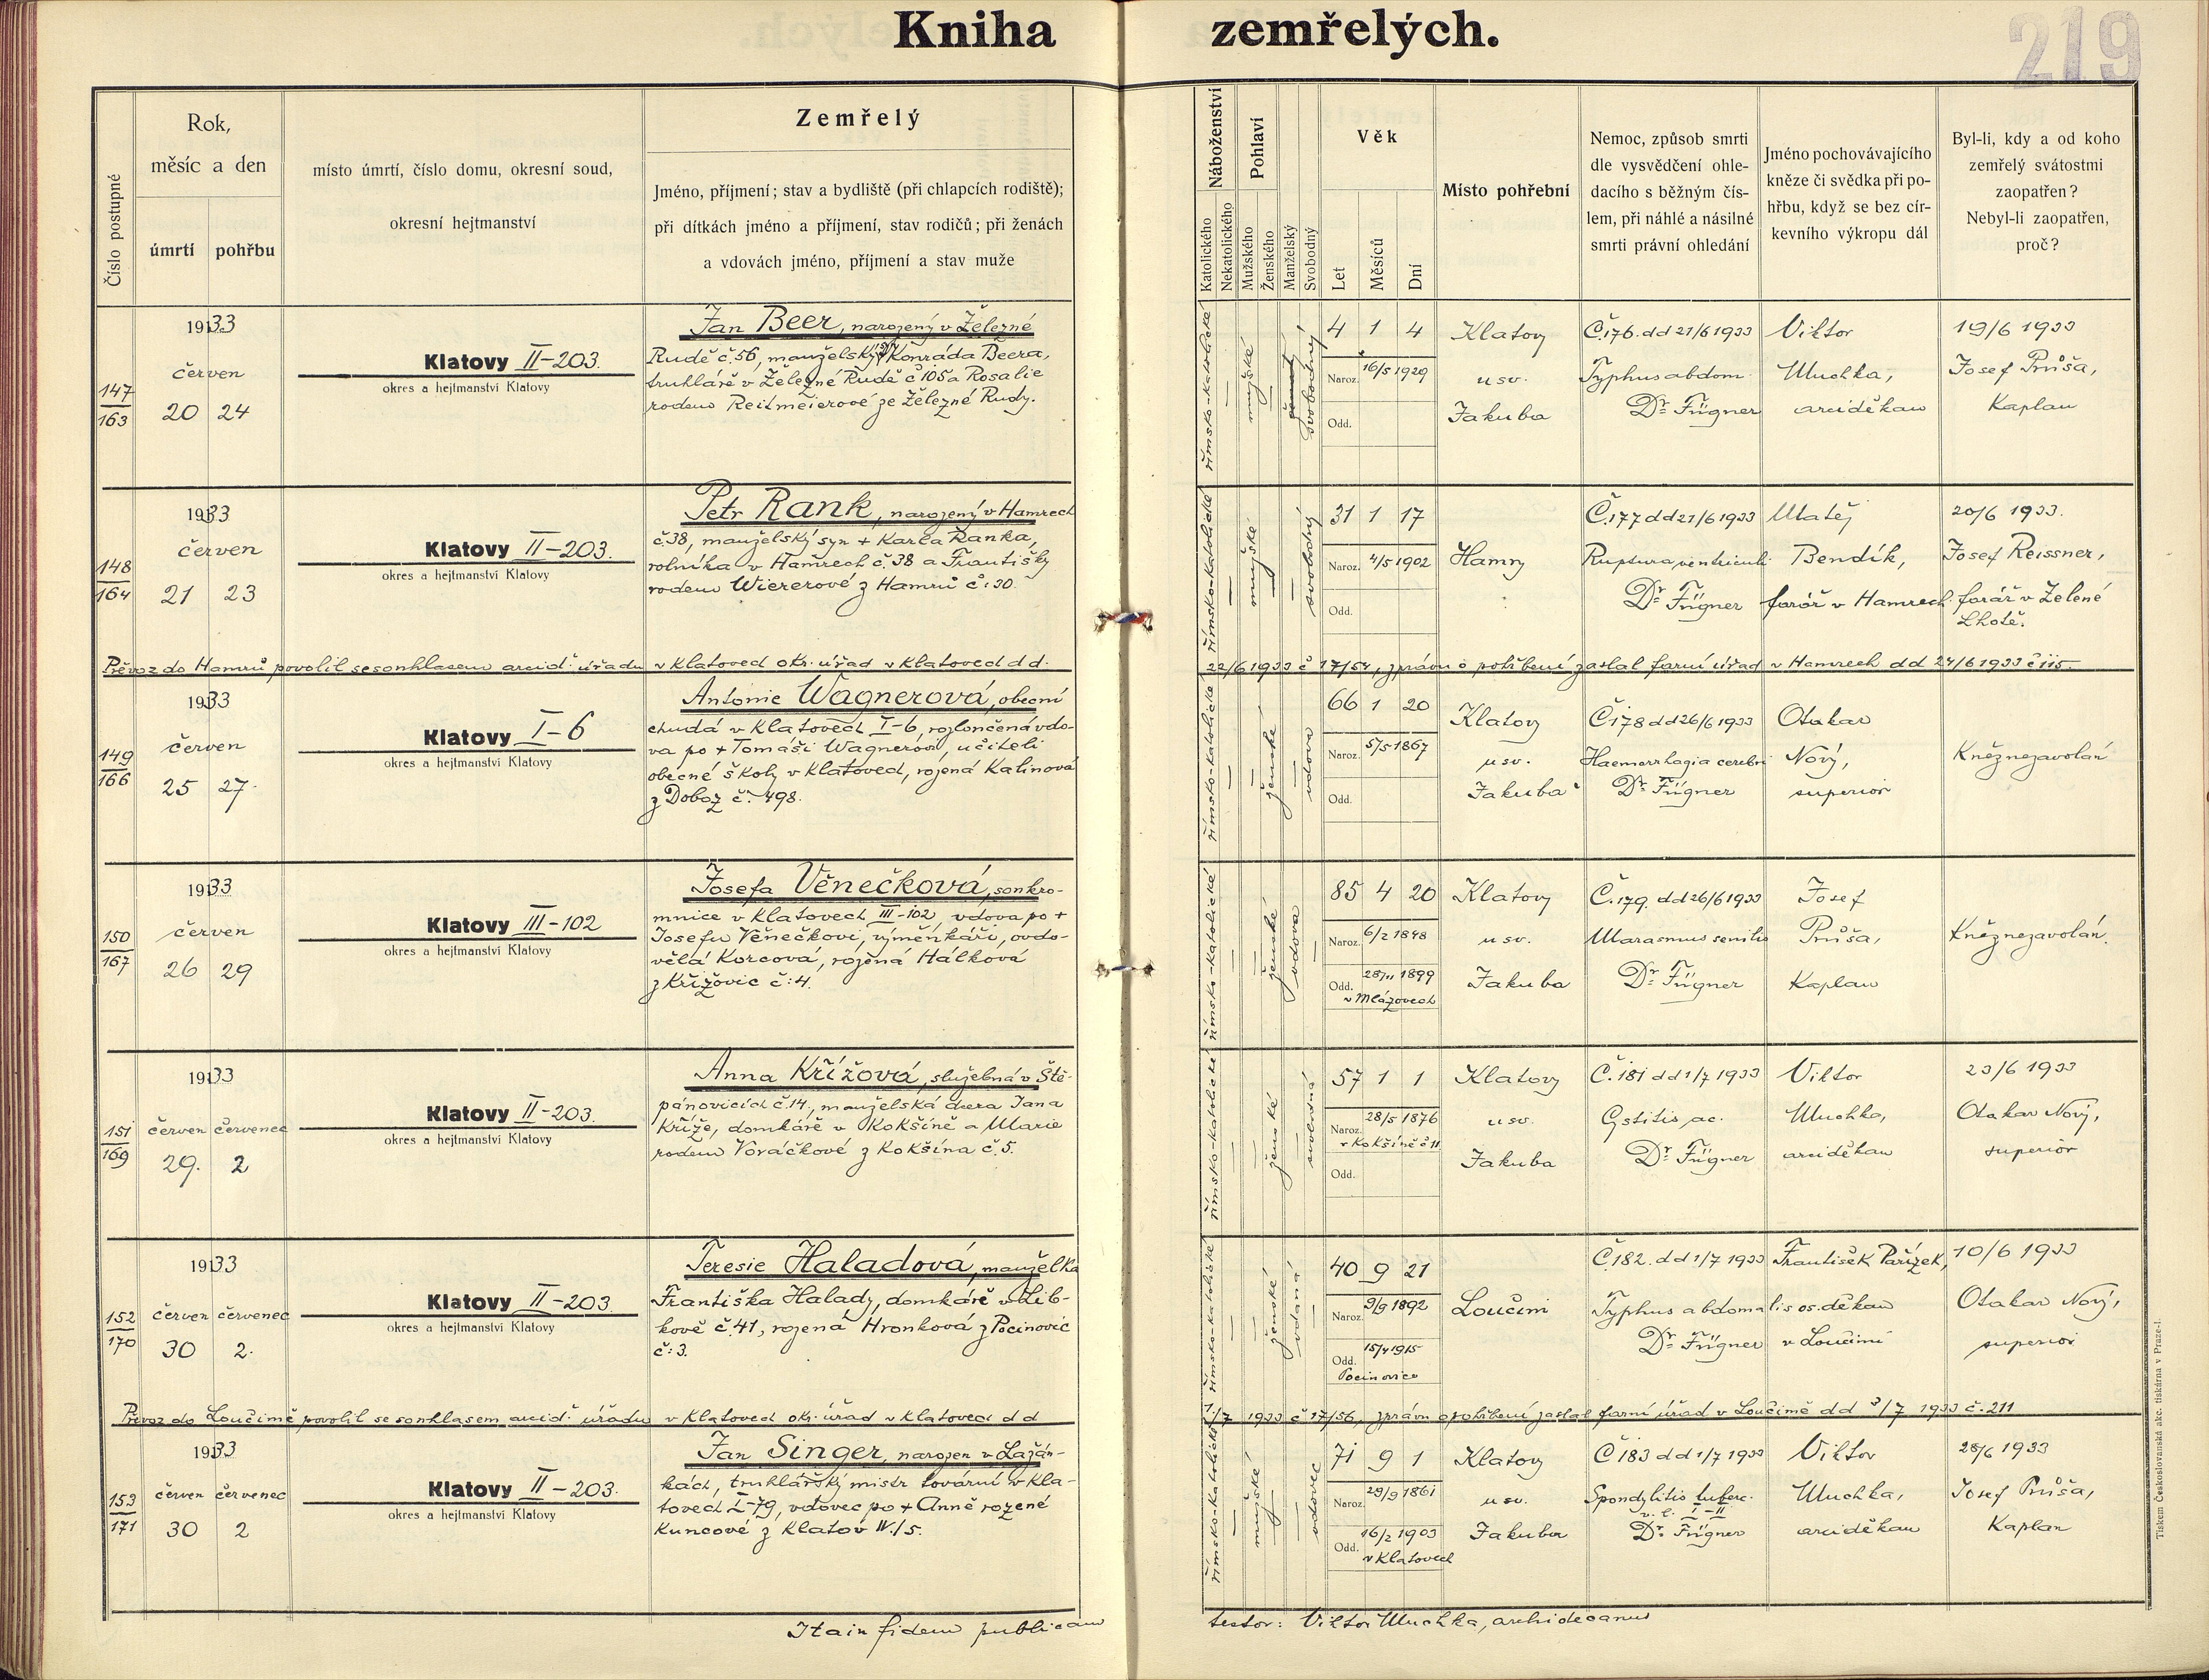 Kniha zemřelých.
219
Číslo postupné
Rok,
měsíc a den
úmrtí pohřbu
místo úmrtí, číslo domu, okresní soud,
okresní hejtmanství
Zemřelý
Jméno, příjmení; stav a bydliště (při chlapcích rodiště);
při dítkách jméno a příjmení, stav rodičů; při ženách
a vdovách jméno, příjmení a stav muže
Náboženství
Katolického
Nekatolického
Pohlaví
Mužského
Ženského
Manželský
Svobodný
Věk
Let
Měsíců
Dní
Místo pohřební
Nemoc, způsob smrti
dle vysvědčení ohle-
dacího s běžným čís-
lem, při náhlé a násilné
smrti právní ohledání
Jméno pochovávajícího
kněze či svědka při po-
hřbu, když se bez cír-
kevního výkropu dál
Byl-li, kdy a od koho
zemřelý svátostmi
zaopatřen?
Nebyl-li zaopatřen,
proč?
147
163
1933
červen
20 24
Klatovy II-203.
okres a hejtmanství Klatovy
Jan Beer, narozený v Železné
Rudě č.56, manželský syn Konráda Beera,
truhláře v Železné Rudě č 105 a Rosalie
rodem Reitmeierové ze Železné Rudy.
římsko-katolické
mužské
svobodný
4 1 4
Naroz. 16/5 1929
Odd.
Klatovy
u sv.
Jakuba
Č.176. dd 21/6 1933
Typhus abdom.
Dr Fügner
Viktor
Muchka,
arciděkan
19/6 1933
Josef Průša,
Kaplan
148
164
1933
červen
21 23
Klatovy II-203.
okres a hejtmanství Klatovy
Petr Rank, narozený v Hamrech
č.38, manželský syn + Karla Ranka,
rolníka v Hamrech č.38 a Františky
rodem Wiererové z Hamrů č:30.
římsko-katolické
mužské
svobodný
31 1 17
Naroz. 4/5 1902
Odd.
Hamry
Č.177 dd 21/6 1933
Ruptura ventriculi
Dr Fügner
Matěj
Bendík,
farář v Hamrech
20/6 1933.
Josef Reissner,
farář v Zelené
Lhotě.
Převoz do Hamrů povolil se souhlasem arcid. úřadu v Klatovech okr. úřad v Klatovech dd.
22/6 1933 č 17/54, zprávu o pohřbení zaslal farní úřad v Hamrech dd 24/6 1933 č 115
149
166
1933
červen
25 27.
Klatovy I-6
okres a hejtmanství Klatovy
Antonie Wagnerová, obecní
chudá v Klatovech I-6, rozloučená vdo-
va po + Tomáši Wagnerovi, učiteli
obecné školy v Klatovech, rozená Kalinová
z Doboz č. 498.
římsko-katolické
ženské
vdova
66 1 20
Naroz. 5/5 1867
Odd.
Klatovy
u sv.
Jakuba
Č178 dd 26/6 1933
Haemorrhagia cerebri
Dr Fügner
Otakar
Nový,
superior
Kněz nezavolán
150
167
1933
červen
26 29
Klatovy III-102
okres a hejtmanství Klatovy
Josefa Věnečková, soukro-
mnice v Klatovech III-102, vdova po +
Josefu Věnečkovi, výměnkáři, ovdo-
vělá Korcová, rozená Hálková
z Křižovic č:4.
římsko-katolické
ženské
vdova
85 4 20
Naroz. 6/2 1848
Odd. 28/11 1899
v Mlázovech
Klatovy
u sv.
Jakuba
Č.179. dd 26/6 1933
Marasmus senilis
Dr Fügner
Josef
Průša,
Kaplan
Kněz nezavolán.
151
169
1933
červen červenec
29. 2
Klatovy II-203.
okres a hejtmanství Klatovy
Anna Křížová, služebná v Ště-
pánovicích č.14., manželská dcera Jana
Kříže, domkáře v Kokšíně a Marie
rodem Voráčkové z Kokšína č.5.
římsko-katolické
ženské
svobodná
57 1 1
Naroz. 28/5 1876
v Kokšíně č 11
Odd.
Klatovy
u sv.
Jakuba
Č.181 dd 1/7 1933
Cystitis ac.
Dr Fügner
Viktor
Muchka,
arciděkan
23/6 1933
Otakar Nový,
superior
152
170
1933
červen červenec
30 2.
Klatovy II-203.
okres a hejtmanství Klatovy
Teresie Haladová, manželka
Františka Halady, domkáře v Lib-
kově č.41, rozená Hronková z Pocinovic
č:3.
římsko-katolické
ženské
vdaná
40 9 21
Naroz. 9/9 1892
Odd. 15/4 1915
Pocinovice
Loučim
Č.182. dd 1/7 1933
Typhus abdomalis
Dr Fügner
František Pařízek,
os. děkan
v Loučimi
10/6 1933
Otakar Nový,
superior
Převoz do Loučimě povolil se souhlasem arcid. úřadu v Klatovech okr. úřad v Klatovech dd
1/7 1933 č 17/56, zprávu o pohřbení zaslal farní úřad v Loučimě dd 3/7 1933 č. 211
153
171
1933
červen červenec
30 2
Klatovy II-203.
okres a hejtmanství Klatovy
Jan Singer, narozen v Lažán-
kách, truhlářský mistr tovární v Kla-
tovech I-79, vdovec po + Anně rozené
Kuncové z Klatov IV./5.
římsko-katolické
mužské
vdovec
71 9 1
Naroz. 29/9 1861
Odd. 16/2 1903
v Klatovech
Klatovy
u sv.
Jakuba
Č 183 dd 1/7 1933
Spondylitis tuberc.
v. l. I-II
Dr Fügner
Viktor
Muchka,
arciděkan
28/6 1933
Josef Průša,
Kaplan
Ita in fidem publicam
testor: Viktor Muchka, archidecanus
Tiskem Československá akc. tiskárna v Praze-I.